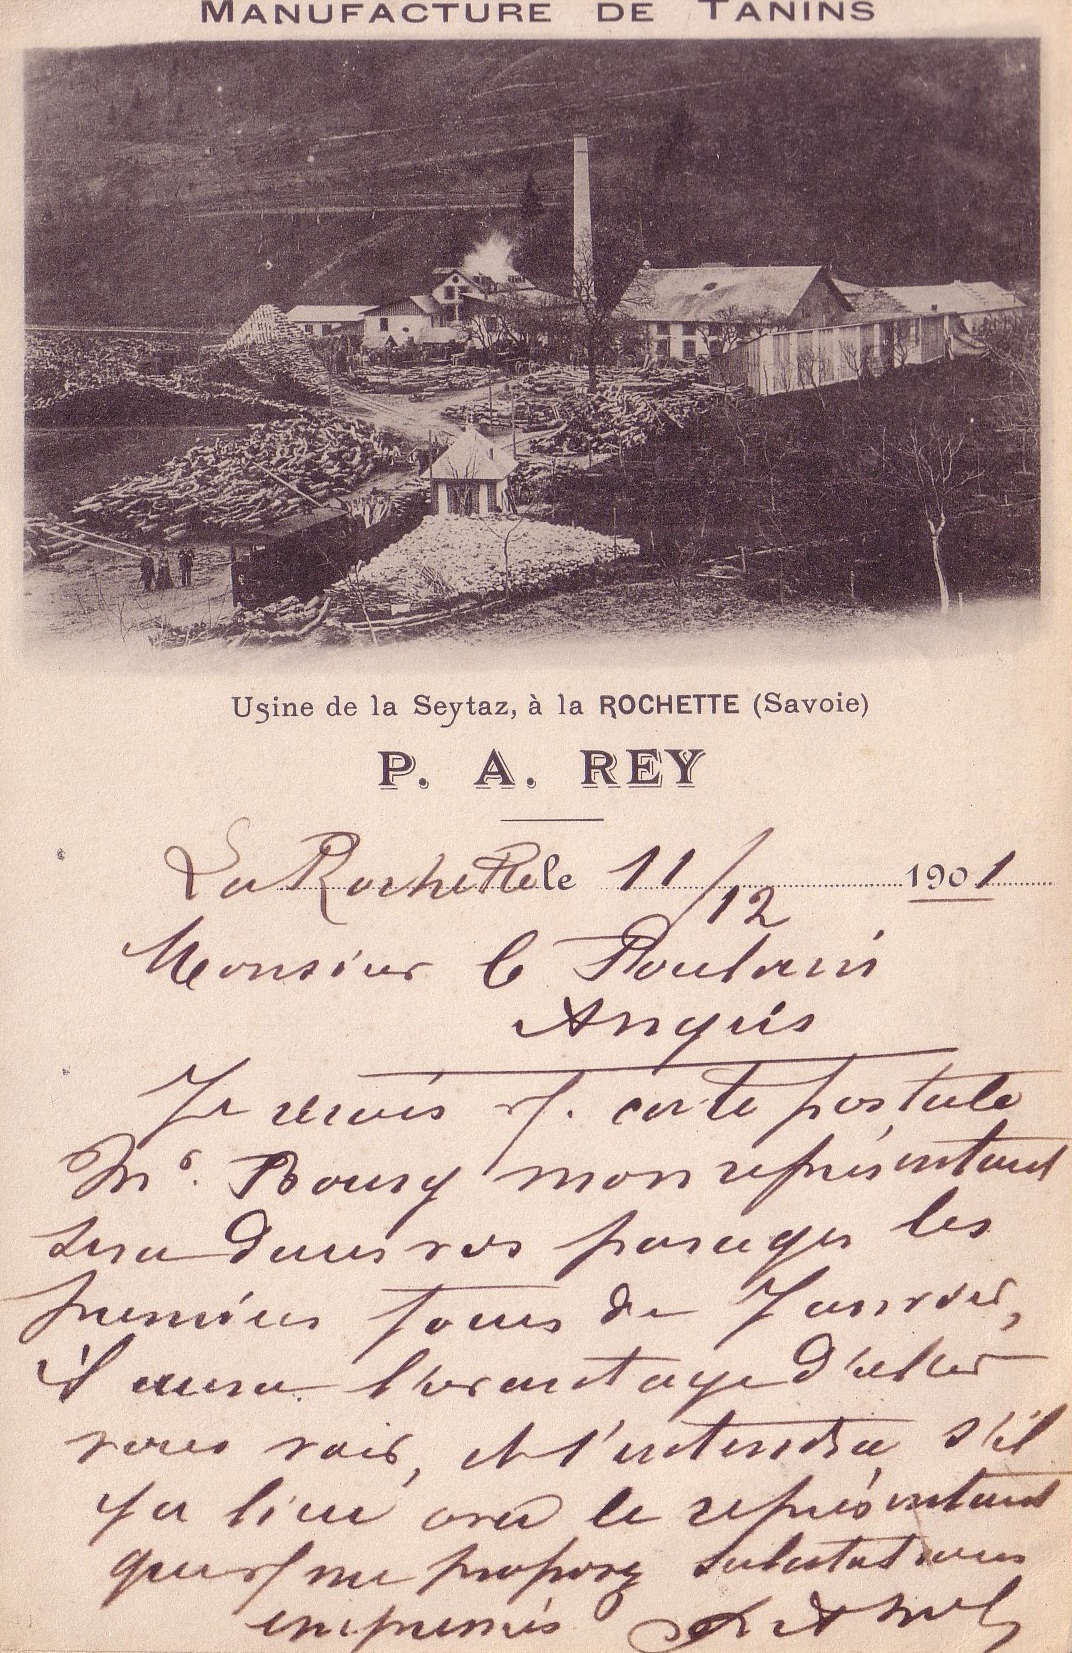 MANUFACTURE DE TANINS
Usine de la Seytaz, à la ROCHETTE (Savoie)
P. A. REY
La Rochette le 11/12 1901
Monsieur Poulain
Je reçois carte postale
Mr. Bourg mon représentant
sera dans vos parages les
premiers jours de Janvier,
il aura l'avantage d'aller
vous voir, et s'entendra s'il
y a lieu avec le représentant
que me proposez salutations
empressés